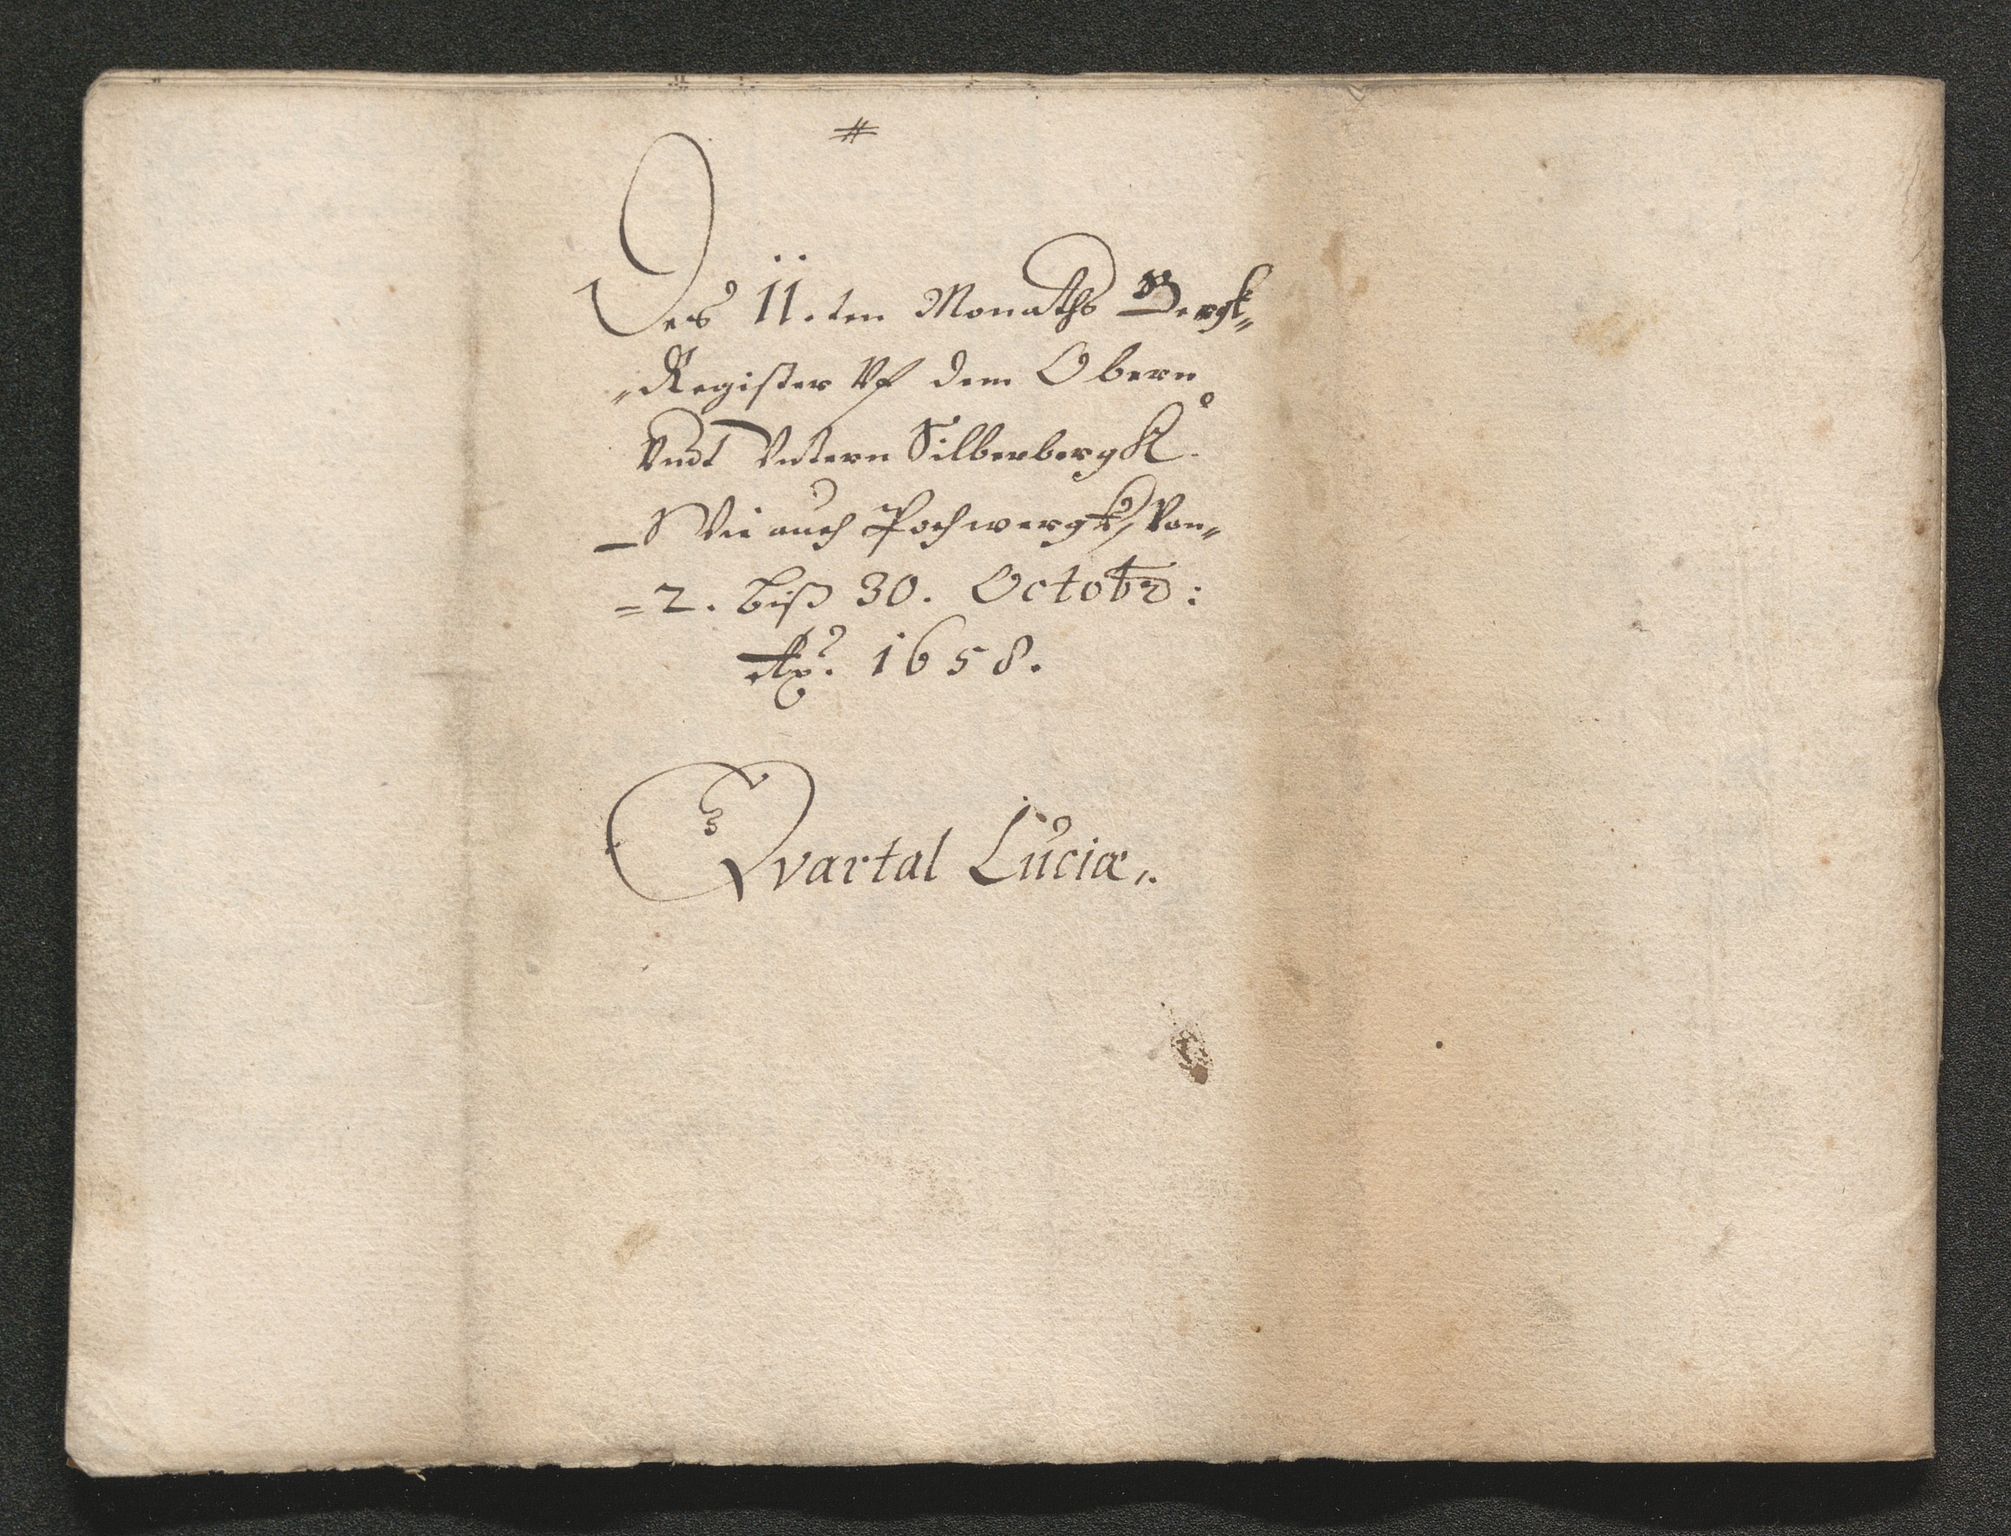 #
Des 11.ten Monaths Bergk-
Register Vf dem Obern
Vndt Vntern Silberbergk.
Wie auch Pochwergk, Von
2. biß 30. Octobr:
Ao. 1658.
Qvartal Luciæ.